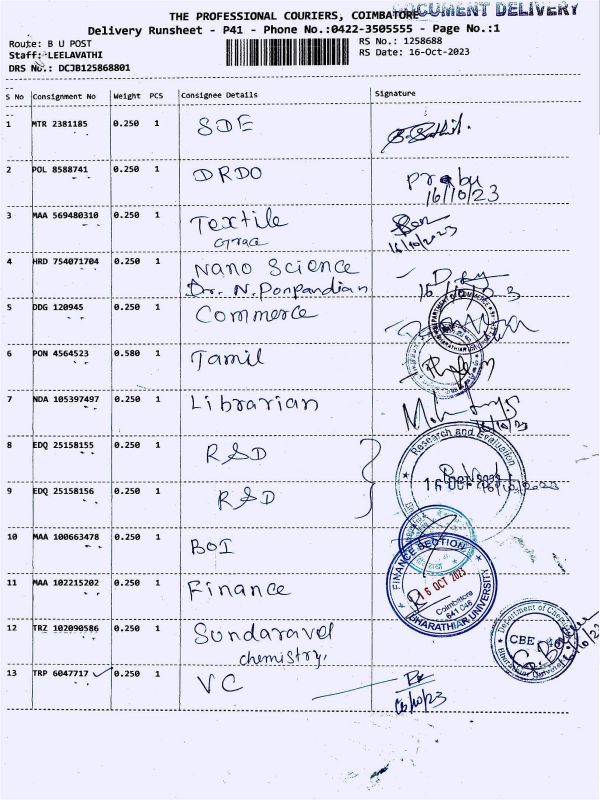 THE PROFESSIONAL COURIERS, COIMBATORE
DOCUMENT DELIVERY
Delivery Runsheet - P41 - Phone No.:0422-3505555 - Page No.:1
Route: B U POST
RS No.: 1258688
Staff: LEELAVATHI
RS Date: 16-Oct-2023
DRS No.: DCJB125868801
S No Consignment No Weight PCS Consignee Details Signature
1 MTR 2381185 0.250 1 SDE
2 POL 8588741 0.250 1 DRDO Prabu
16/10/23
3 MAA 569480310 0.250 1 Textile
16/10/2023
4 HRD 754071704 0.250 1 Nano Science
Dr. N. Ponpandian
5 DDG 120945 0.250 1 Commerce
DEPARTMENT OF COMMERCE
6 PON 4564523 0.580 1 Tamil
7 NDA 105397497 0.250 1 Librarian
16/10/23
8 EDQ 25158155 0.250 1 R&D
Research and Evaluation
16 OCT 2023
16/10/2023
9 EDQ 25158156 0.250 1 R&D
10 MAA 100663478 0.250 1 BOI
11 MAA 102215202 0.250 1 Finance
FINANCE SECTION
16 OCT 2023
Coimbatore
641 046
BHARATHIAR UNIVERSITY
12 TRZ 102090586 0.250 1 Sundaravel
chemistry,
Department of Chemistry
CBE
Bharathiar University
13 TRP 6047717 0.250 1 VC
16/10/23